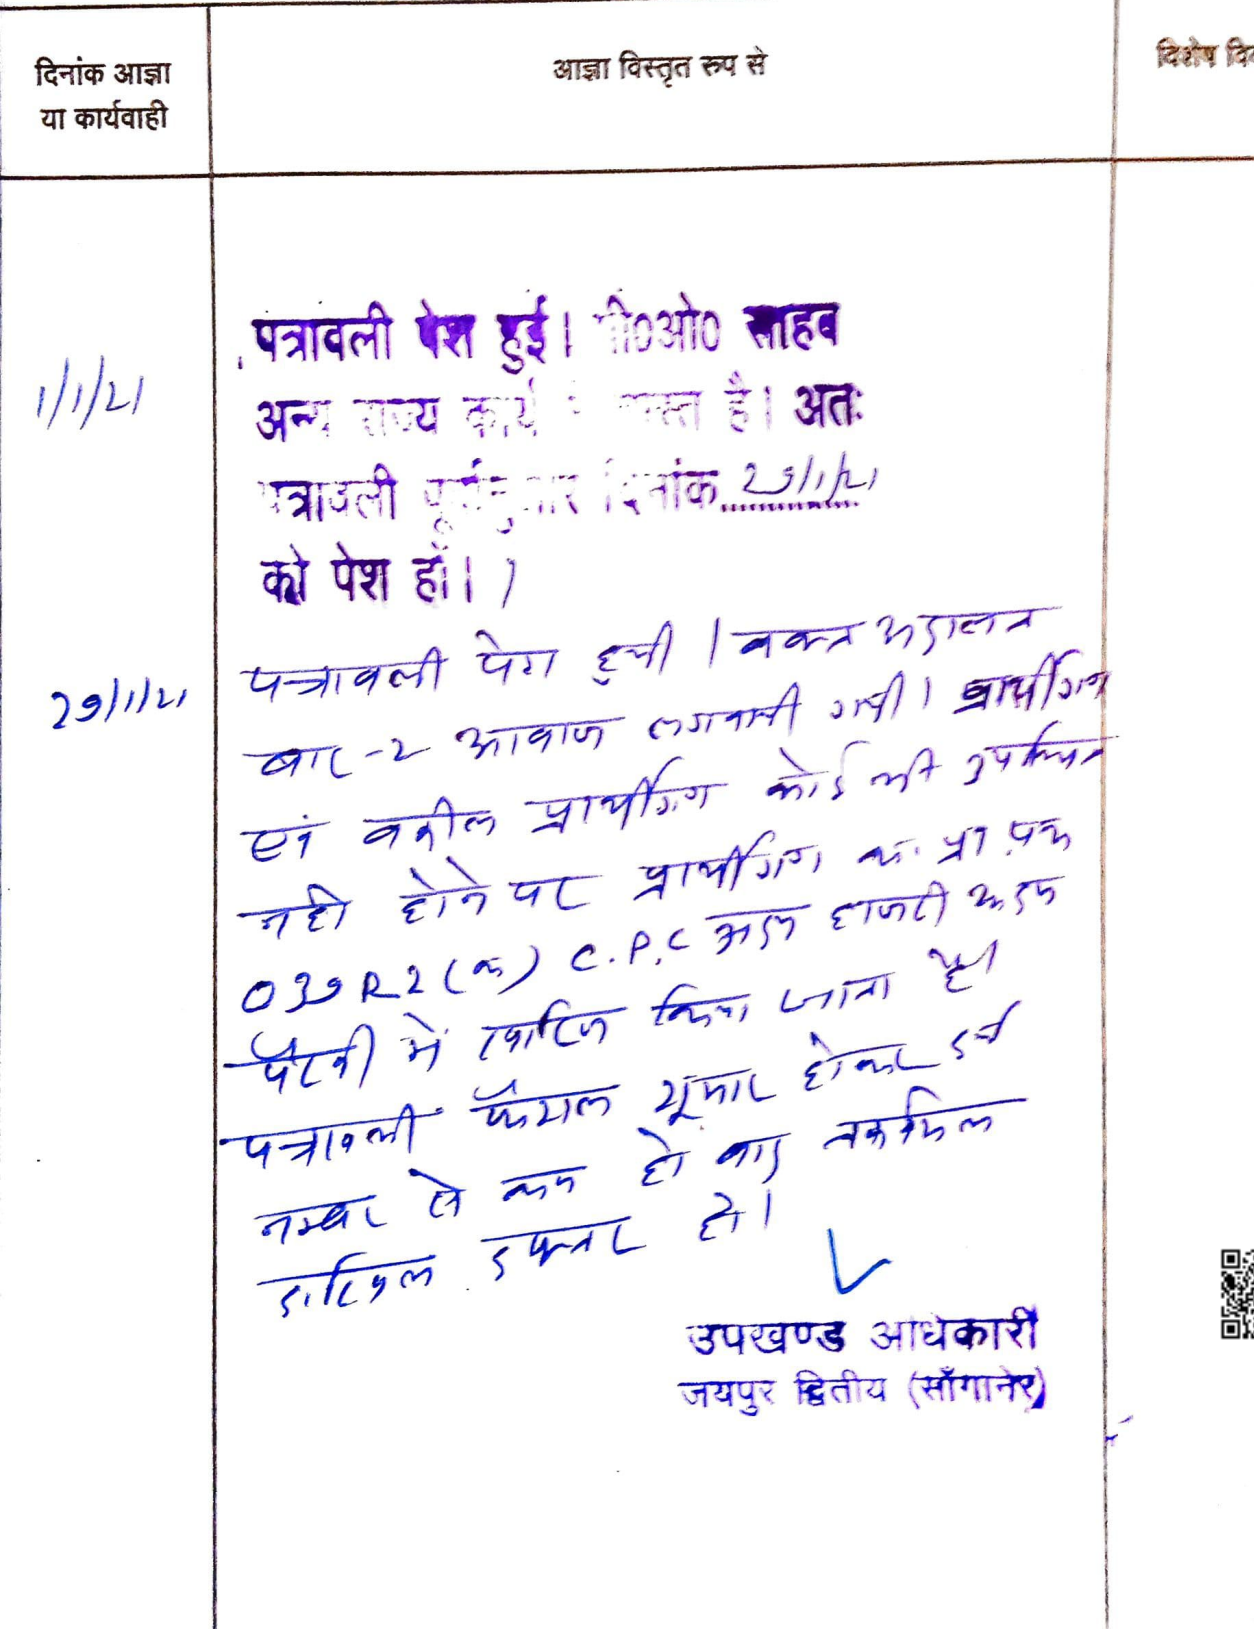 दिनांक आज्ञा
या कार्यवाही
आज्ञा विस्तृत रुप से
विशेष
1/1/21
पत्रावली पेश हुई। पी०ओ० साहब
अन्य राज्य कार्य में व्यस्त है। अतः
पत्रावली पूर्वानुसार दिनांक 29/1/21
को पेश हों।
29/1/21
पत्रावली पेश हुयी। वक्त अदालत
बार-2 आवाज लगवायी गयी। प्रार्थीगण
एवं वकील प्रार्थीगण कोई भी उपस्थित
नही होने पर प्रार्थीगण का प्रा.पत्र
039 R2(क) C.P.C अदम हाजरी अदम
पैरवी में खारिज किया जाता है।
पत्रावली फैसल शुमार होकर दर्ज
नम्बर से कम हो बाद तकमिल
दाखिल दफ्तर हो।
उपखण्ड अधिकारी
जयपुर द्वितीय (साँगानेर)